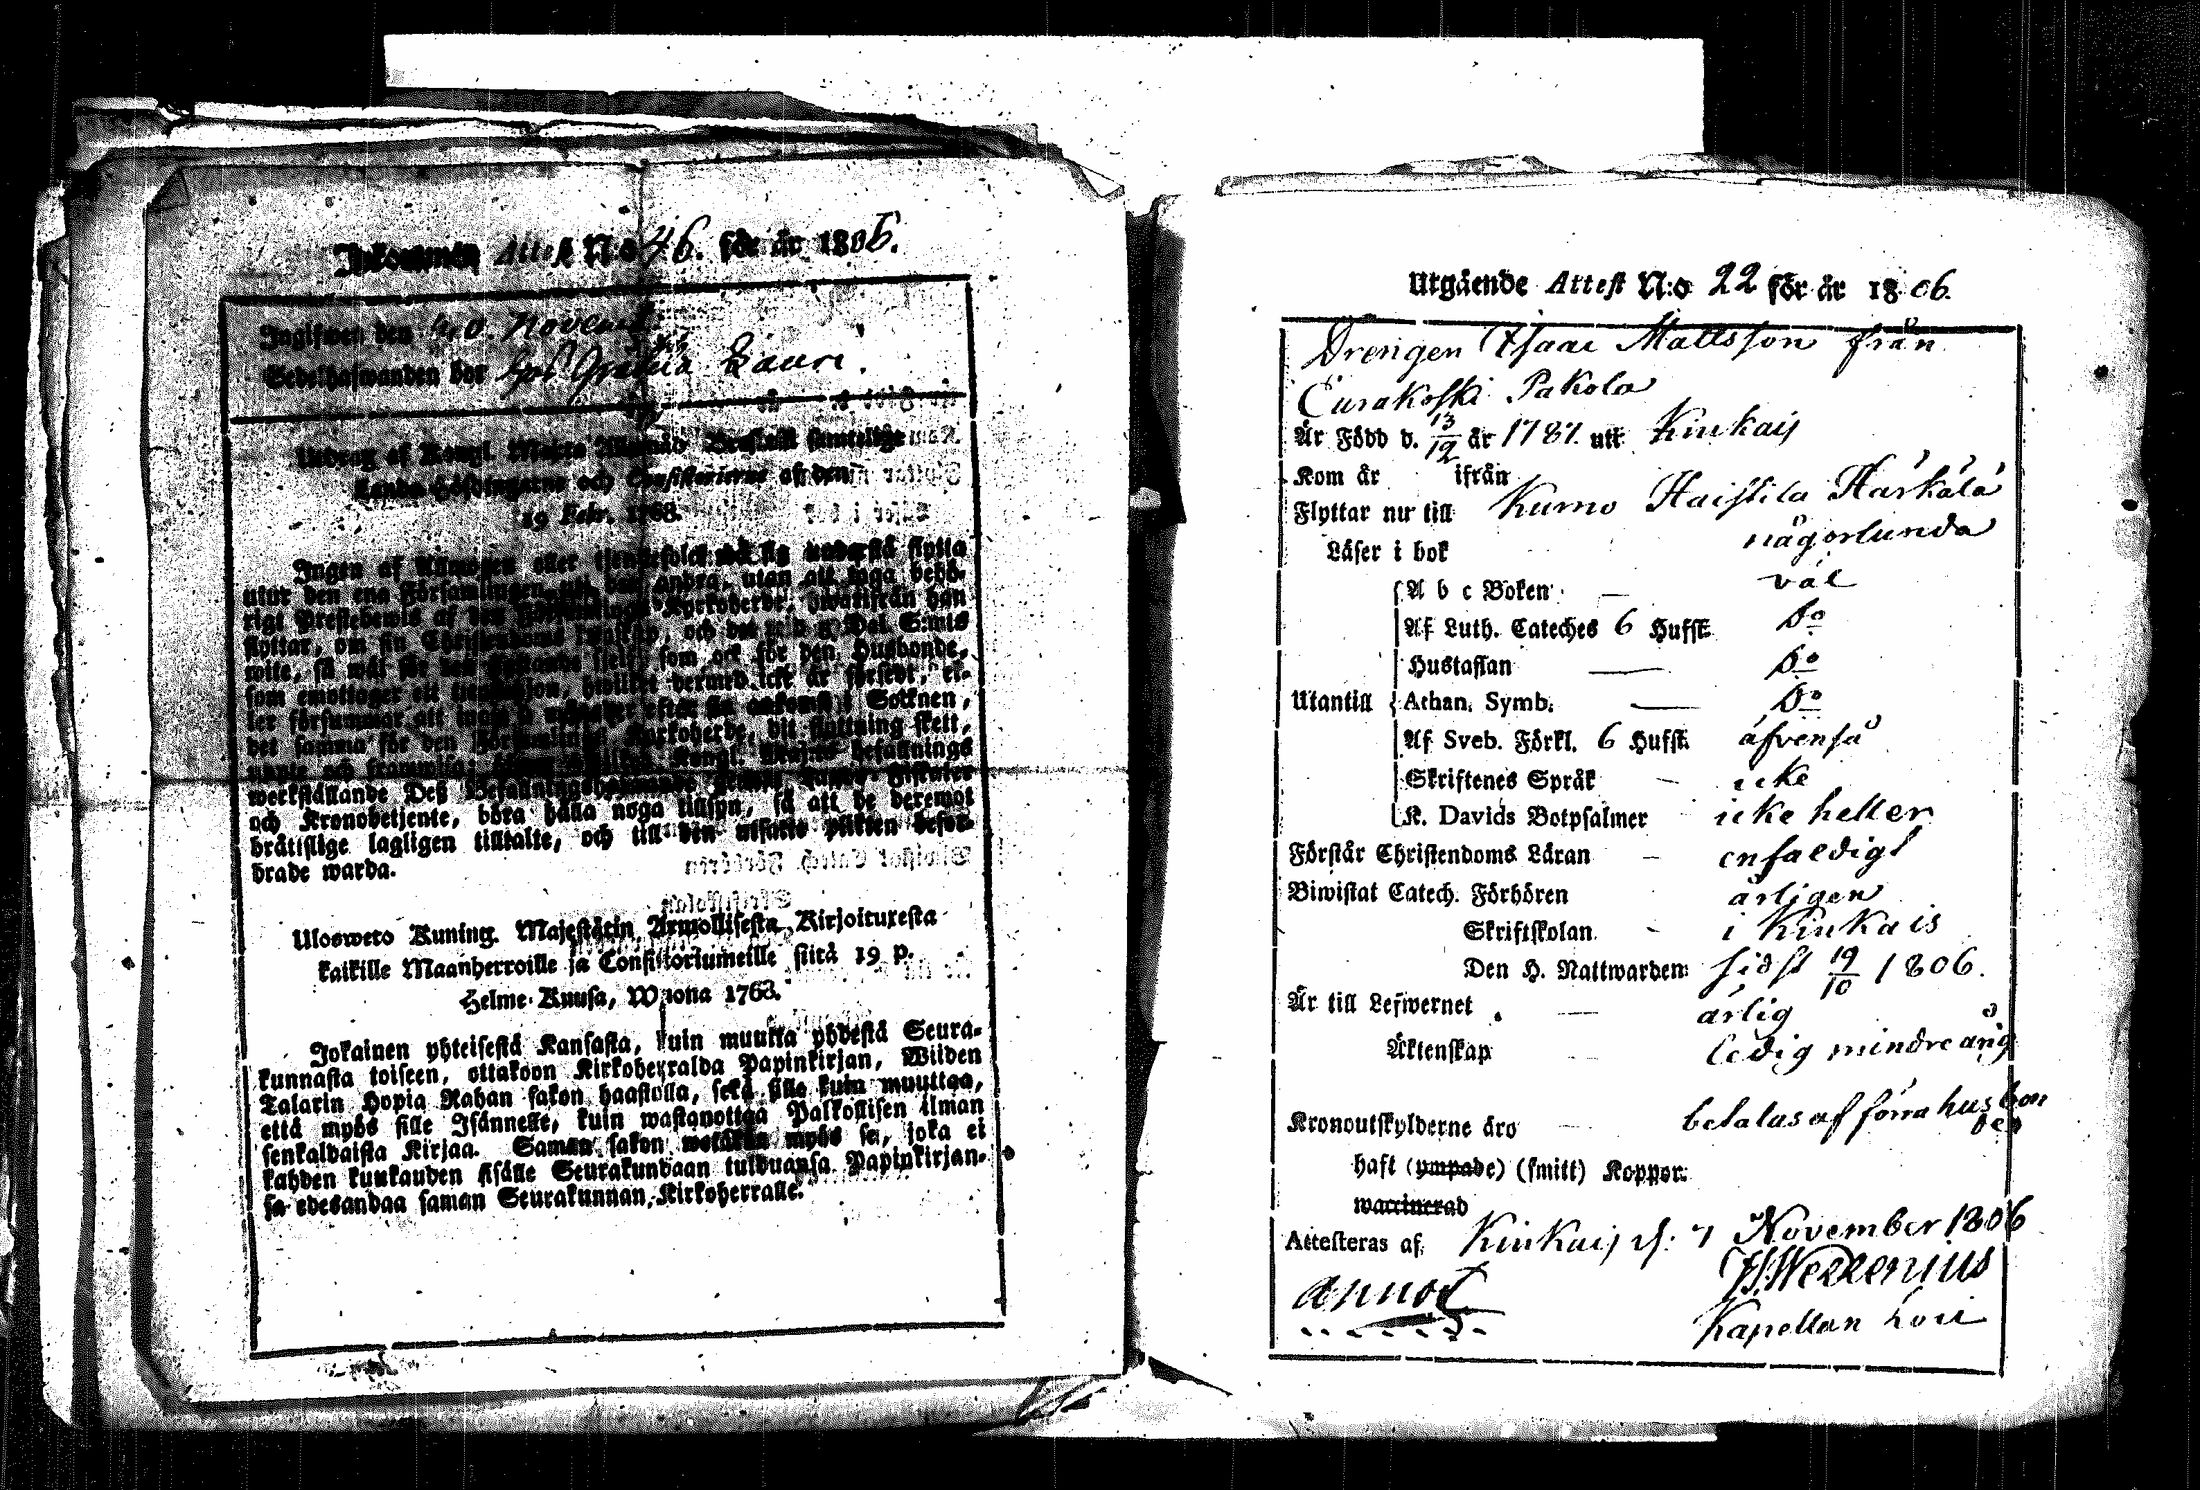 Inkommen Attest N:o 46. för år 1806.
Ingifwen den Novemb.
Sedelhafwanden hos Lauri.
Utdrag af Kongl. Maj:ts samtelige
Lands-Höfdingarne och Consistorierne af den
19 Febr. 1768.
Ingen af Allmogen eller tjenstefolcket må sig understå flytta
utur den ena Församlingen uti den andra, utan att taga behö-
rigt Prestebewis af den Församlings Kyrkoherde, hwarifrån han
flyttar, om sin Christendoms och wid Dal. S:mts
wite, så wäl för den som ock för den Husbonde,
som emottager ett tienstehjon, hwilket dermed icke är försedt, el-
ler försummar att inom månader efter sin ankomst i Socknen,
det samma för den Församlings Kyrkoherde, dit flyttning skett,
upte och framwisa; Kongl. Maj:ts Befallnings
werkställande Deß Befallningshafwande Fiskaler
och Kronobetjente, böra hålla noga tillsyn, så att de deremot
brättslige lagligen tilltalte, och till den utsatte plikten befor-
drade warda.
Ulosweto Kuning. Majestätin Armollisesta Kirjoituxesta
kaikille Maanherroille ja Consistoriumeille siitä 19 p.
Helme-Kuusa, Wuona 1768.
Jokainen yhteisestä Kansasta, kuin muutta yhdestä Seura-
kunnasta toiseen, ottakoon Kirkoherralda Papinkirjan, Wiiden
Talarin Hopia Rahan sakon haastolla, sekä sille kuin muuttaa,
että myös sille Isännelle, kuin wastanottaa Palkollisen ilman
senkaldaista Kirjaa. Saman sakon wetäkön myös se, joka ei
kahden kuukauden sisälle Seurakundaan tulduansa Papinkirjan-
sa edesandaa saman Seurakunnan Kirkoherralle.
Utgående Attest N:o 22 för år 1806.
Drengen Isaac Mattsson från
Eurakoski Pakola
Är Född d. 13/12 år 1787. utt Kiukais
Kom år ifrån
Flyttar nu till Kumo Haistila Härkälä
Läser i bok någorlunda
A b c Boken — väl
Af Luth. Cateches 6 Hufst. Do
Hustaflan — Do
Utantill Athan. Symb. — Do
Af Sveb. Förkl. 6 Hufst. äfvenså
Skriftenes Språk — icke
K. Davids Botpsalmer icke heller
Förstår Christendoms Läran — enfaldigt
Biwistat Catech. Förhören årligen
Skriftskolan - i Kiukais
Den H. Nattwarden sidst 19/10 1806.
Är till Lefwernet — ärlig
Äktenskap — ledig mindreårig
Kronoutskylderne äro — betalas af förra husbonden
haft (ympade) (smitt) Koppor.
waccinerad
Attesteras af, Kiukais d: 7 November 1806
Kapellan loci
annot